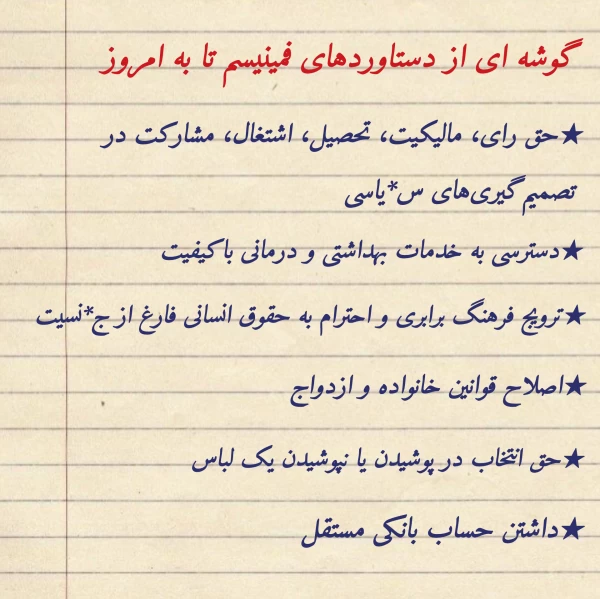 گوشه ای از دستاوردهای فمینیسم تا به امروز
★حق رای، مالیکیت، تحصیل، اشتغال، مشارکت در
تصمیم گیری‌های س*یاسی
★دسترسی به خدمات بهداشتی و درمانی باکیفیت
★ترویج فرهنگ برابری و احترام به حقوق انسانی فارغ از ج*نسیت
★اصلاح قوانین خانواده و ازدواج
★حق انتخاب در پوشیدن یا نپوشیدن یک لباس
★داشتن حساب بانکی مستقل